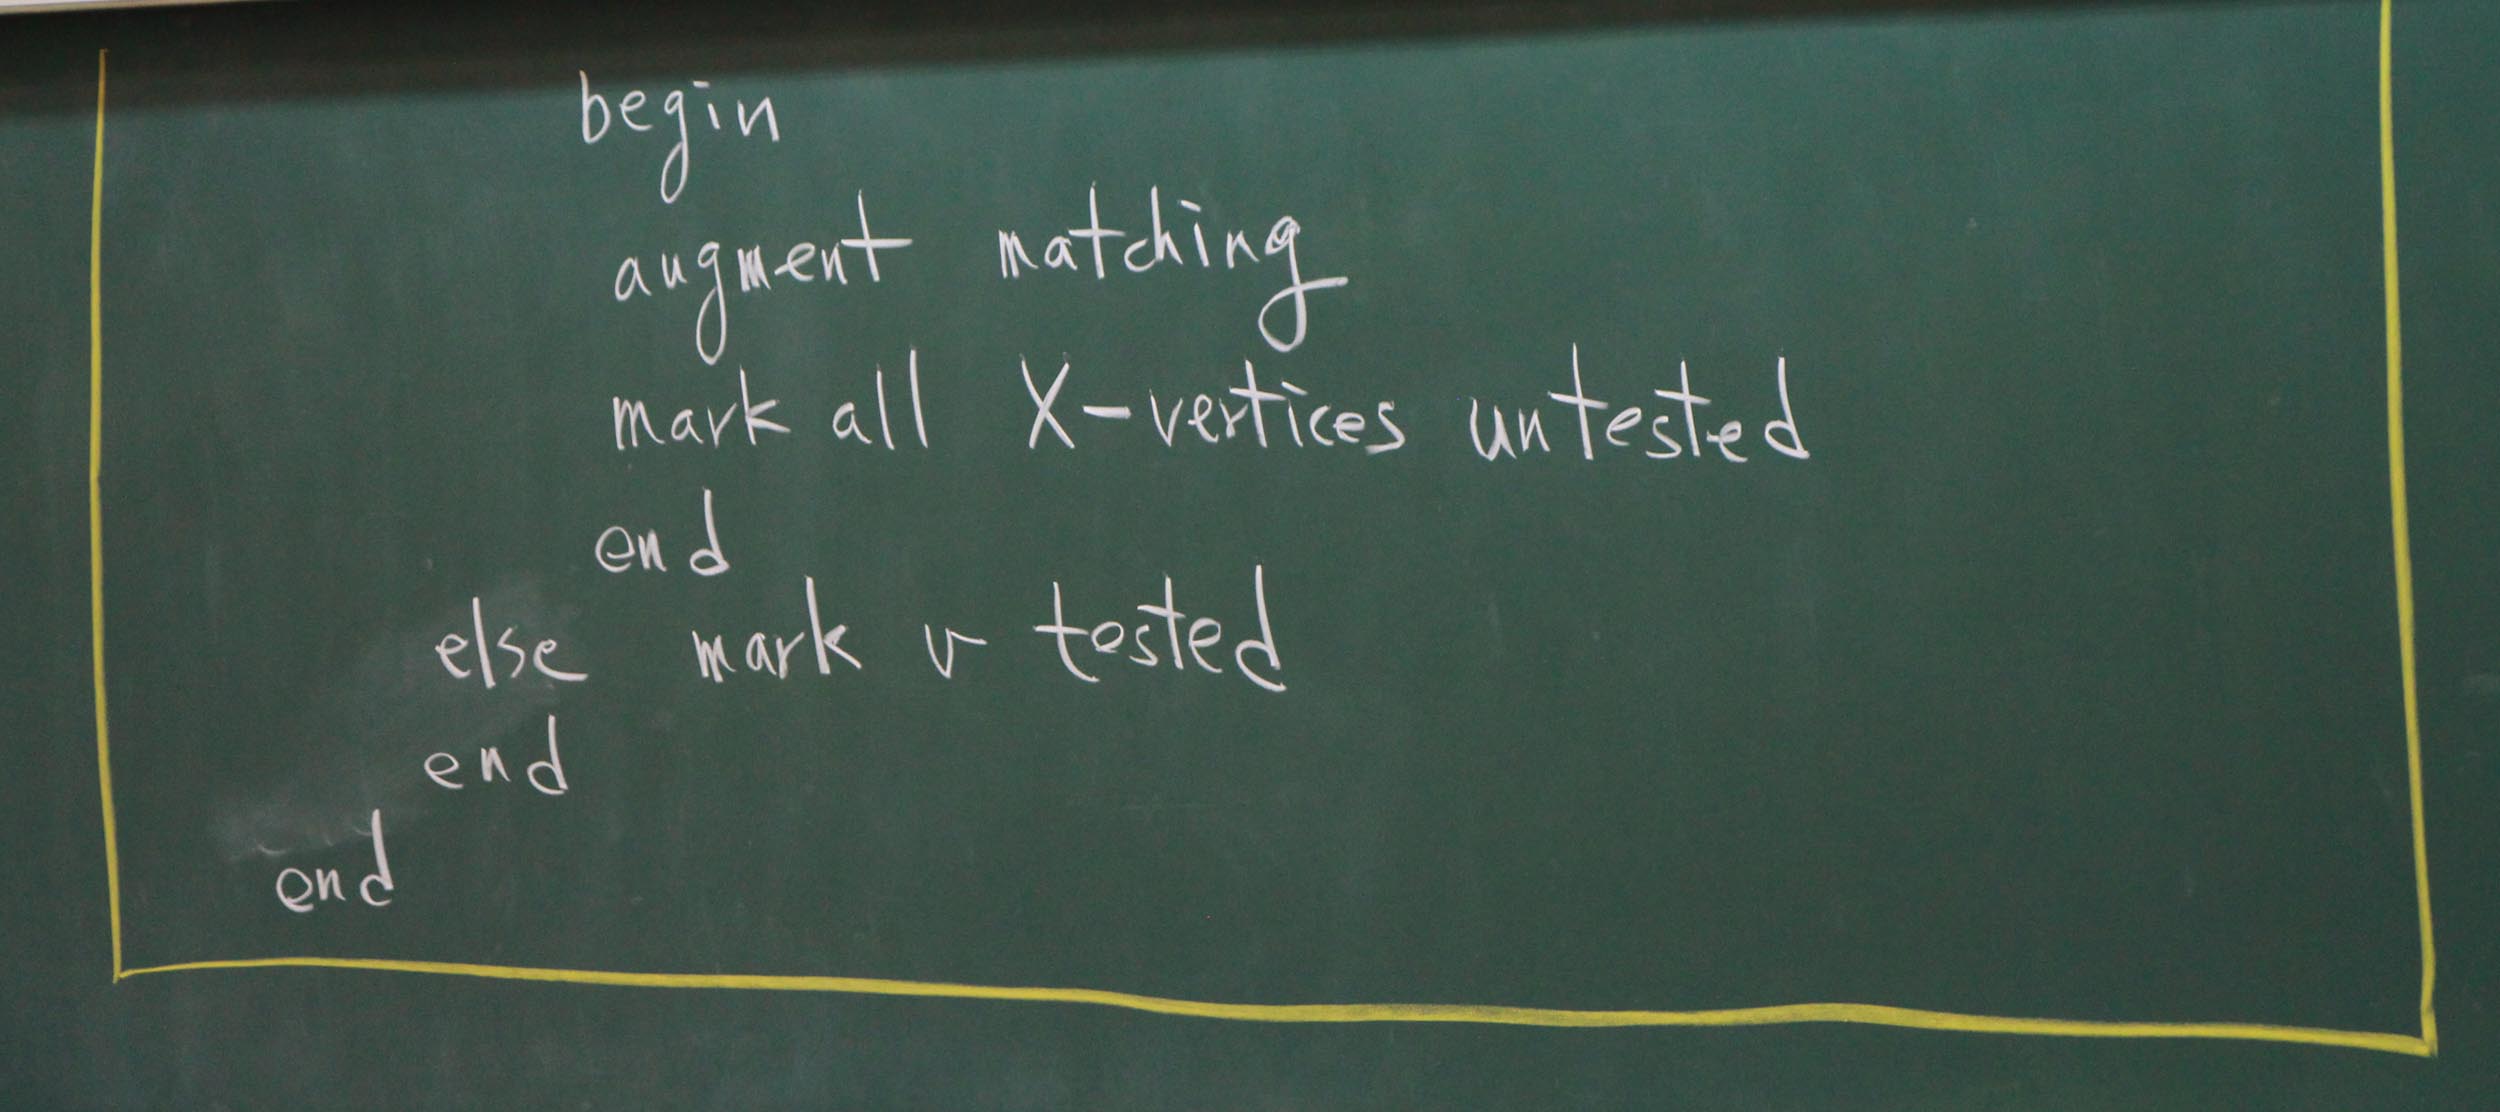 begin
augment matching
mark all X-vertices untested
end
else mark v tested
end
end